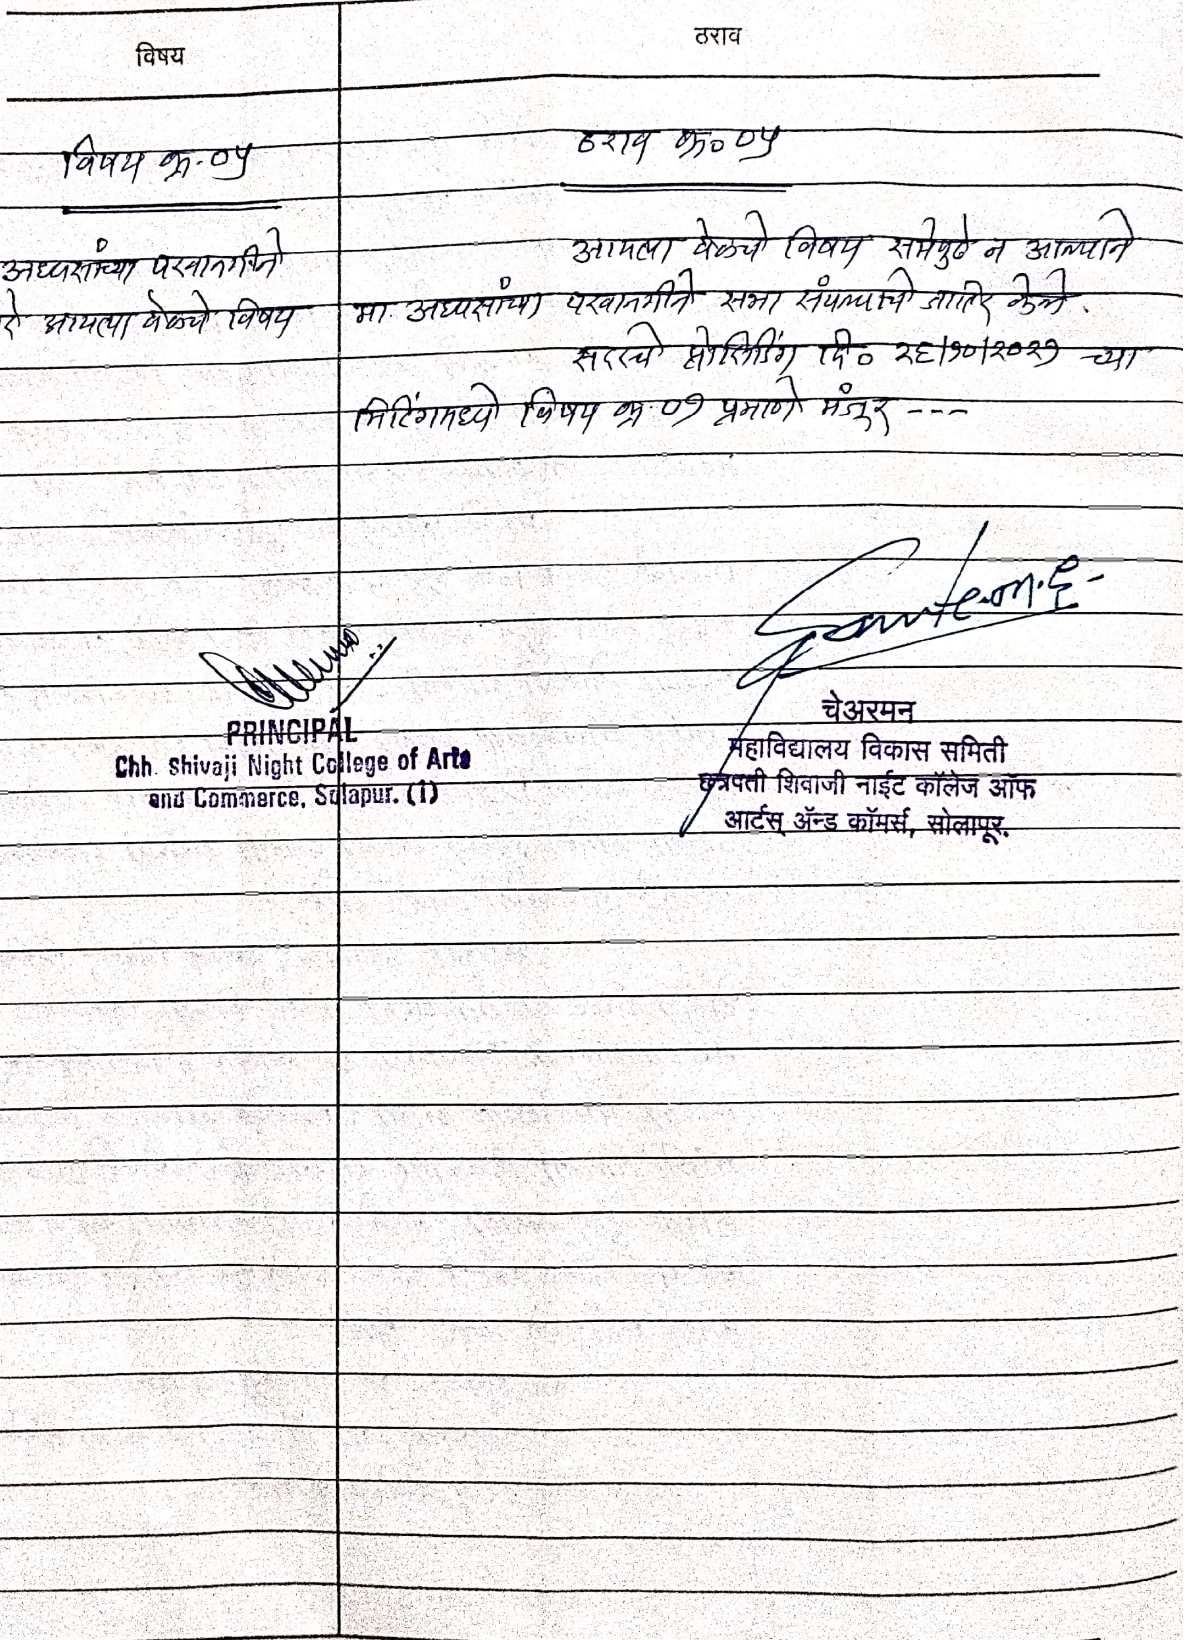 विषय
ठराव
विषय क्र.०५
ठराव क्र० ०५
अध्यक्षांच्या परवानगीने
आयत्या वेळचे विषय
आयत्या वेळचे विषय सभेपुढे न आल्याने
मा. अध्यक्षांच्या परवानगीने सभा संपल्याचे जाहिर केले.
सदरचे प्रोसिडिंग दि० २६/१०/२०२१ च्या
मिटिंगमध्ये विषय क्र. ०१ प्रमाणे मंजूर ---
PRINCIPAL
Chh. Shivaji Night College of Arts
and Commerce, Solapur. (1)
चेअरमन
महाविद्यालय विकास समिती
छत्रपती शिवाजी नाईट कॉलेज ऑफ
आर्टस् ॲन्ड कॉमर्स, सोलापूर.